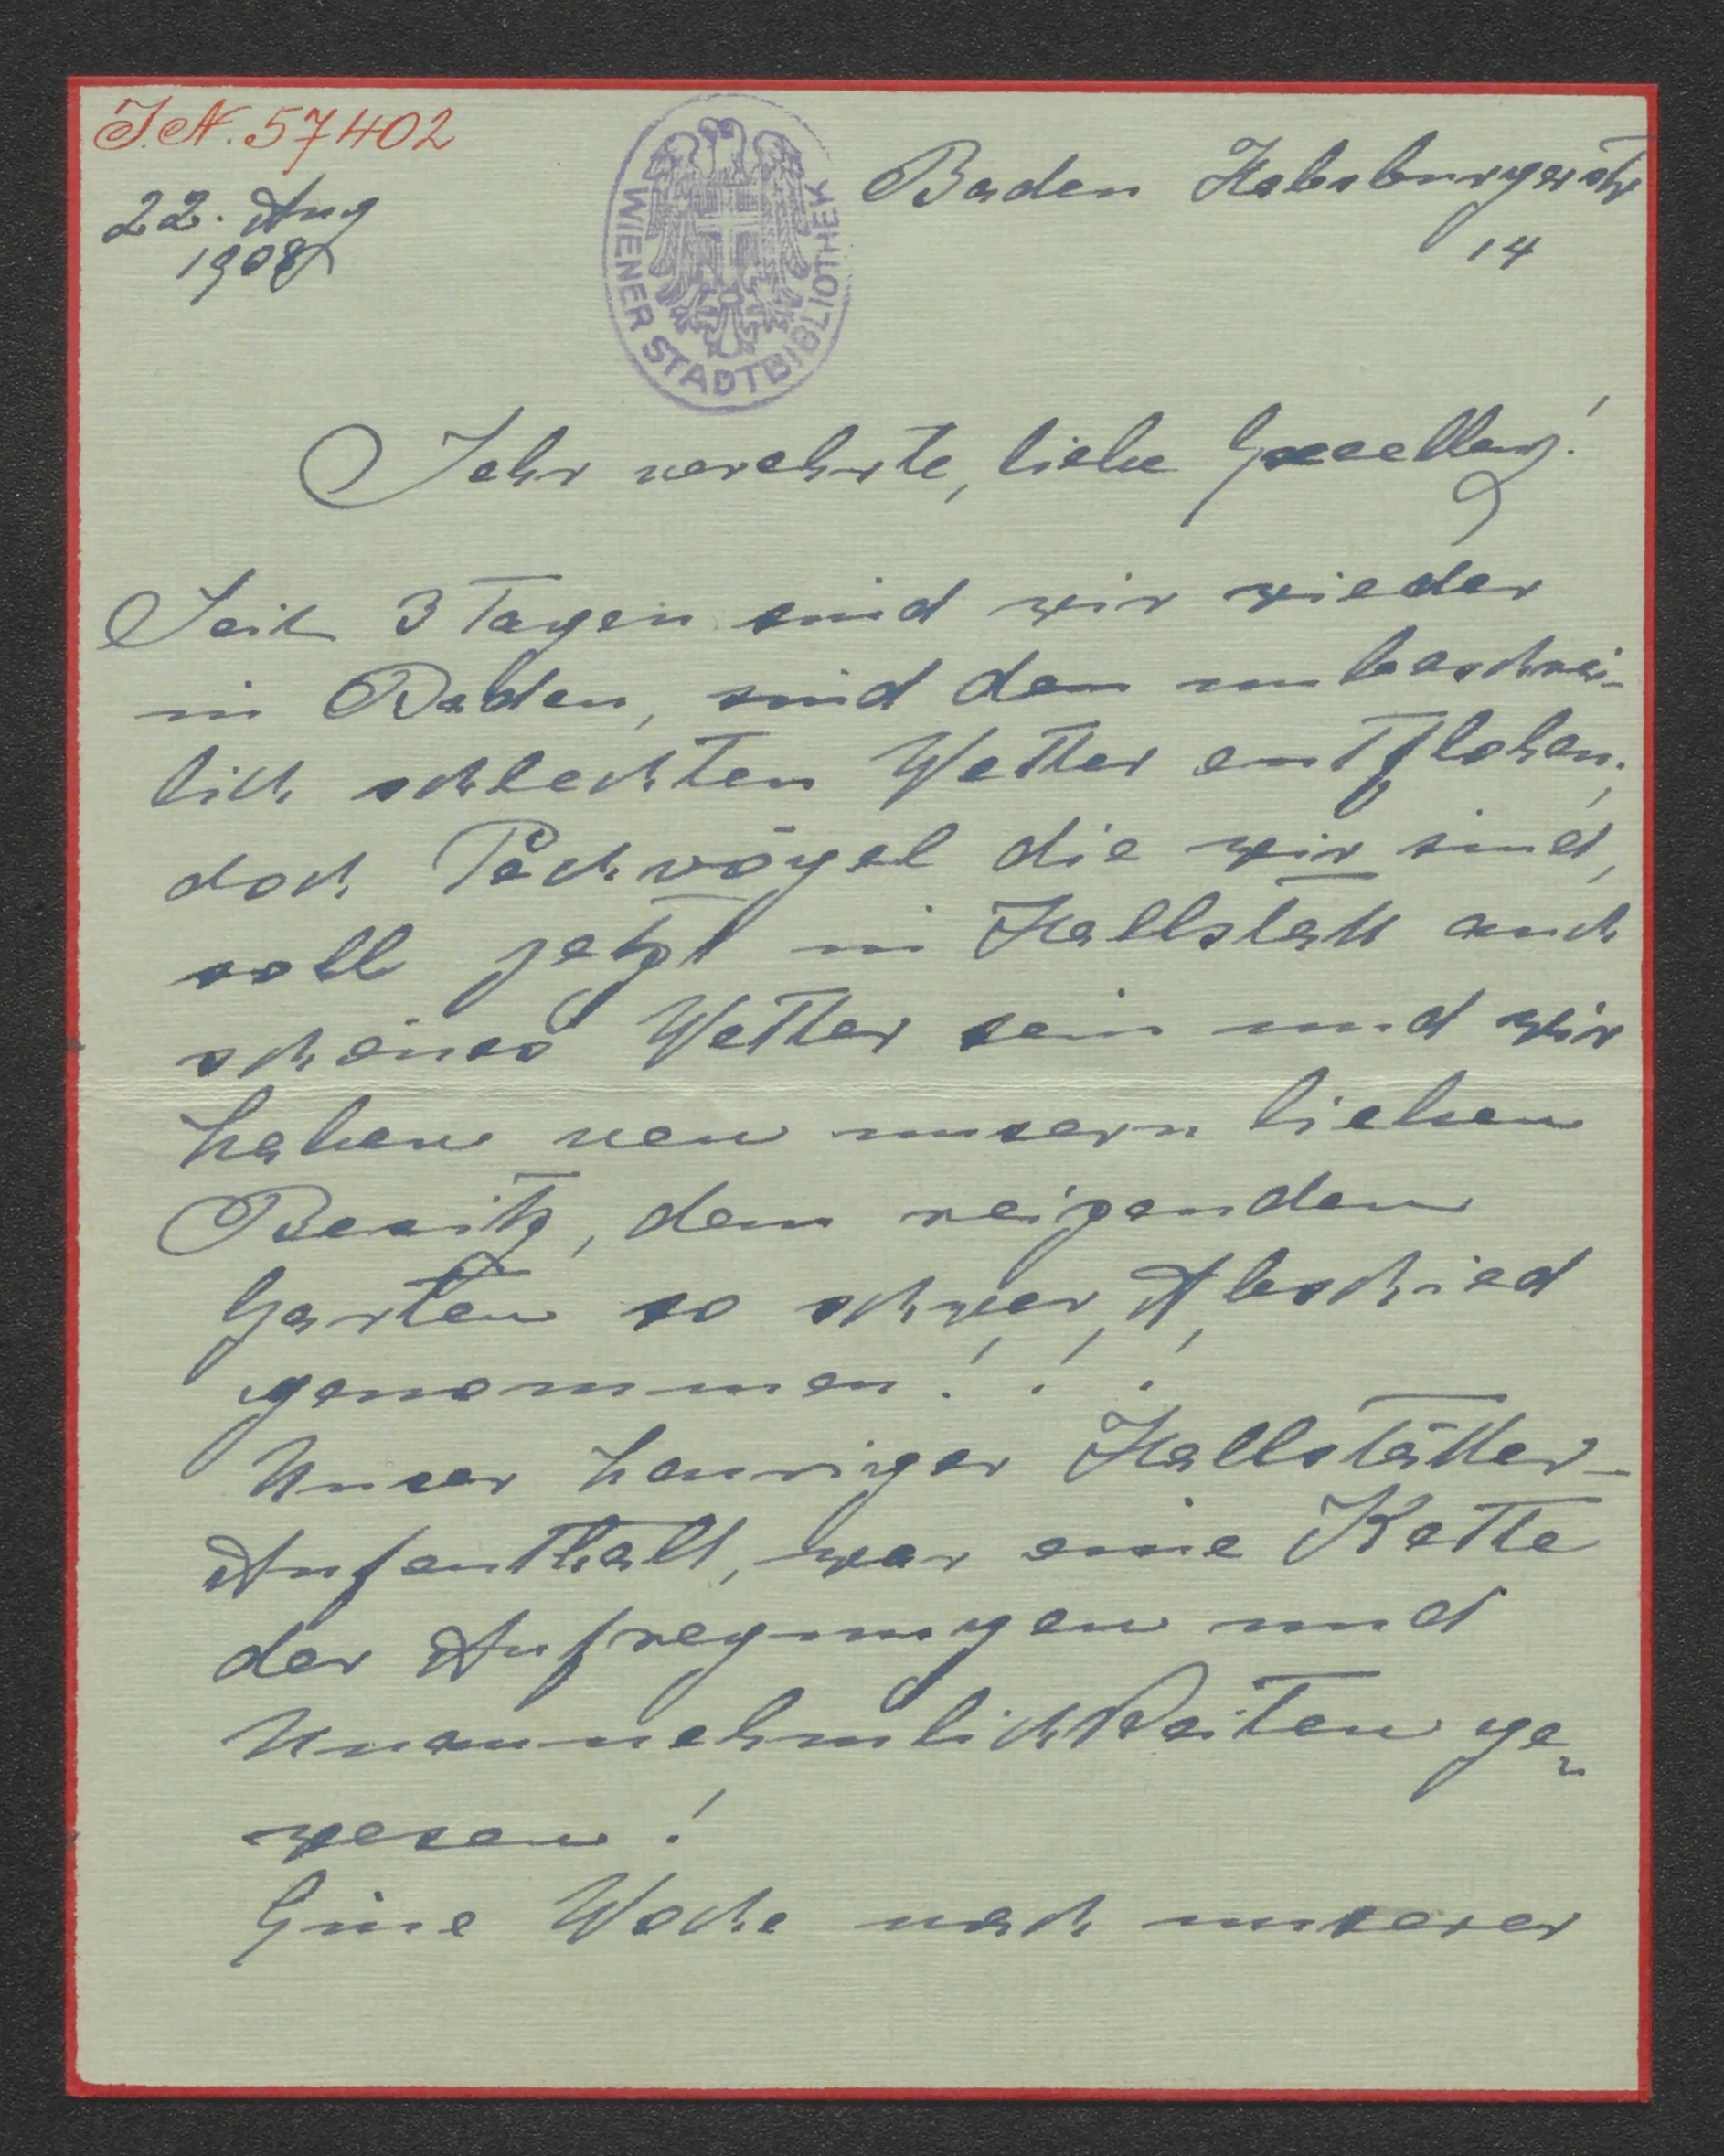 I.N. 57402
22. Aug
1908
WIENER STADTBIBLIOTHEK
Baden Habsburgerstr
14
Sehr verehrte, liebe Excellenz!
Seit 3 Tagen sind wir wieder
in Baden, sind dem unbeschrei-
lich schlechten Wetter entflohen;
doch Pechvögel die wir sind,
soll jetzt in Hallstatt auch
schönes Wetter sein und wir
haben von unsern lieben
Besitz, dem reizenden
Garten so schwer Abschied
genommen!!!
Unser heuriger Hallstätter-
Aufenthalt, war eine Kette
der Aufregungen und
Unannehmlichkeiten ge-
wesen!
Eine Woche nach unserer